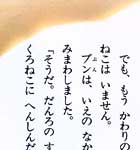 でも、もう かわりの
ねこは いません。
ブンは、いえの なか
みまわしました。
「そうだ。だんろの す
くろねこに へんしんだ